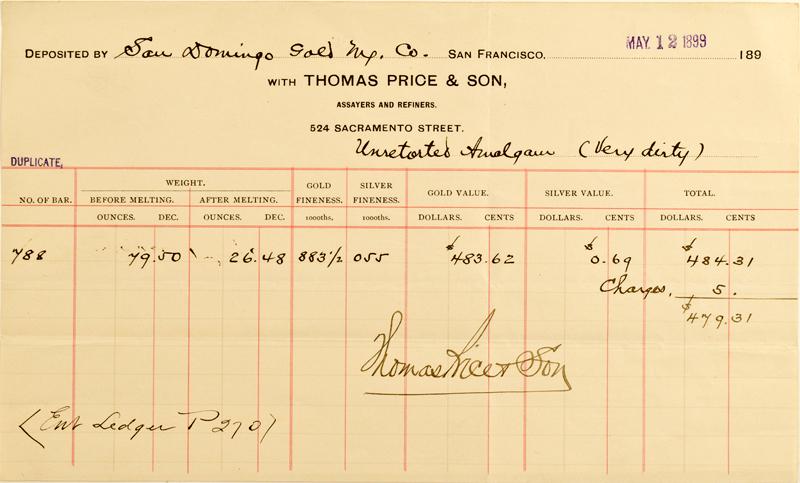 DEPOSITED BY San Domingo Gold Mg. Co. SAN FRANCISCO, MAY 12 1899 189
WITH THOMAS PRICE & SON,
ASSAYERS AND REFINERS.
524 SACRAMENTO STREET.
Unretorted Amalgam (Very dirty)
DUPLICATE,
NO. OF BAR. WEIGHT. GOLD FINENESS. SILVER FINENESS. GOLD VALUE. SILVER VALUE. TOTAL.
BEFORE MELTING. AFTER MELTING.
OUNCES. DEC. OUNCES. DEC. 1000ths. 1000ths. DOLLARS. CENTS DOLLARS. CENTS DOLLARS. CENTS
788 79.50 26.48 883 1/2 055 $483.62 $0.69 $484.31
Charges, 5.
$479.31
Thomas Price & Son
(Ent Ledger P 270)